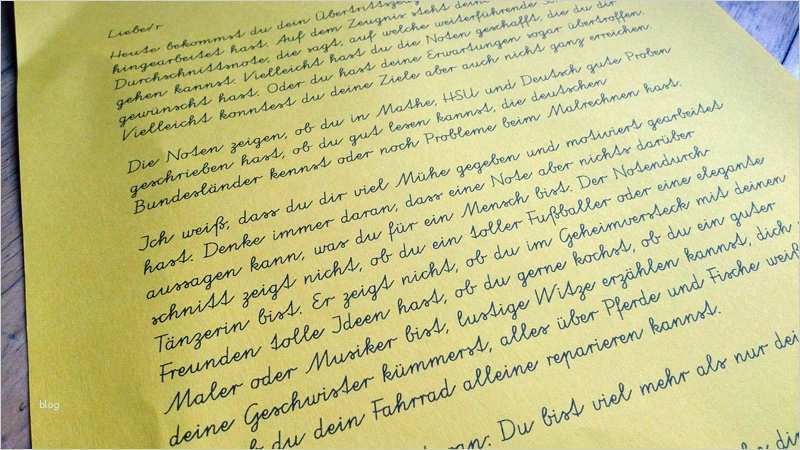 Liebe/r
Heute bekommst du dein Übertrittszeug
hingearbeitet hast. Auf dem Zeugnis steht deine
Durchschnittsnote, die sagt, auf welche weiterführende
gehen kannst. Vielleicht hast du die Noten geschafft, die du dir
gewünscht hast. Oder du hast deine Erwartungen sogar übertroffen.
Vielleicht konntest du deine Ziele aber auch nicht ganz erreichen.
Die Noten zeigen, ob du in Mathe, HSU und Deutsch gute Proben
geschrieben hast, ob du gut lesen kannst, die deutschen
Bundesländer kennst oder noch Probleme beim Malrechnen hast.
Ich weiß, dass du dir viel Mühe gegeben und motiviert gearbeitet
hast. Denke immer daran, dass eine Note aber nichts darüber
aussagen kann, was du für ein Mensch bist. Der Notendurch-
schnitt zeigt nicht, ob du ein toller Fußballer oder eine elegante
Tänzerin bist. Er zeigt nicht, ob du im Geheimversteck mit deinen
Freunden tolle Ideen hast, ob du gerne kochst, ob du ein guter
Maler oder Musiker bist, lustige Witze erzählen kannst, dich
deine Geschwister kümmerst, alles über Pferde und Fische weiß
du dein Fahrrad alleine reparieren kannst.
Du bist viel mehr als nur dei
blog